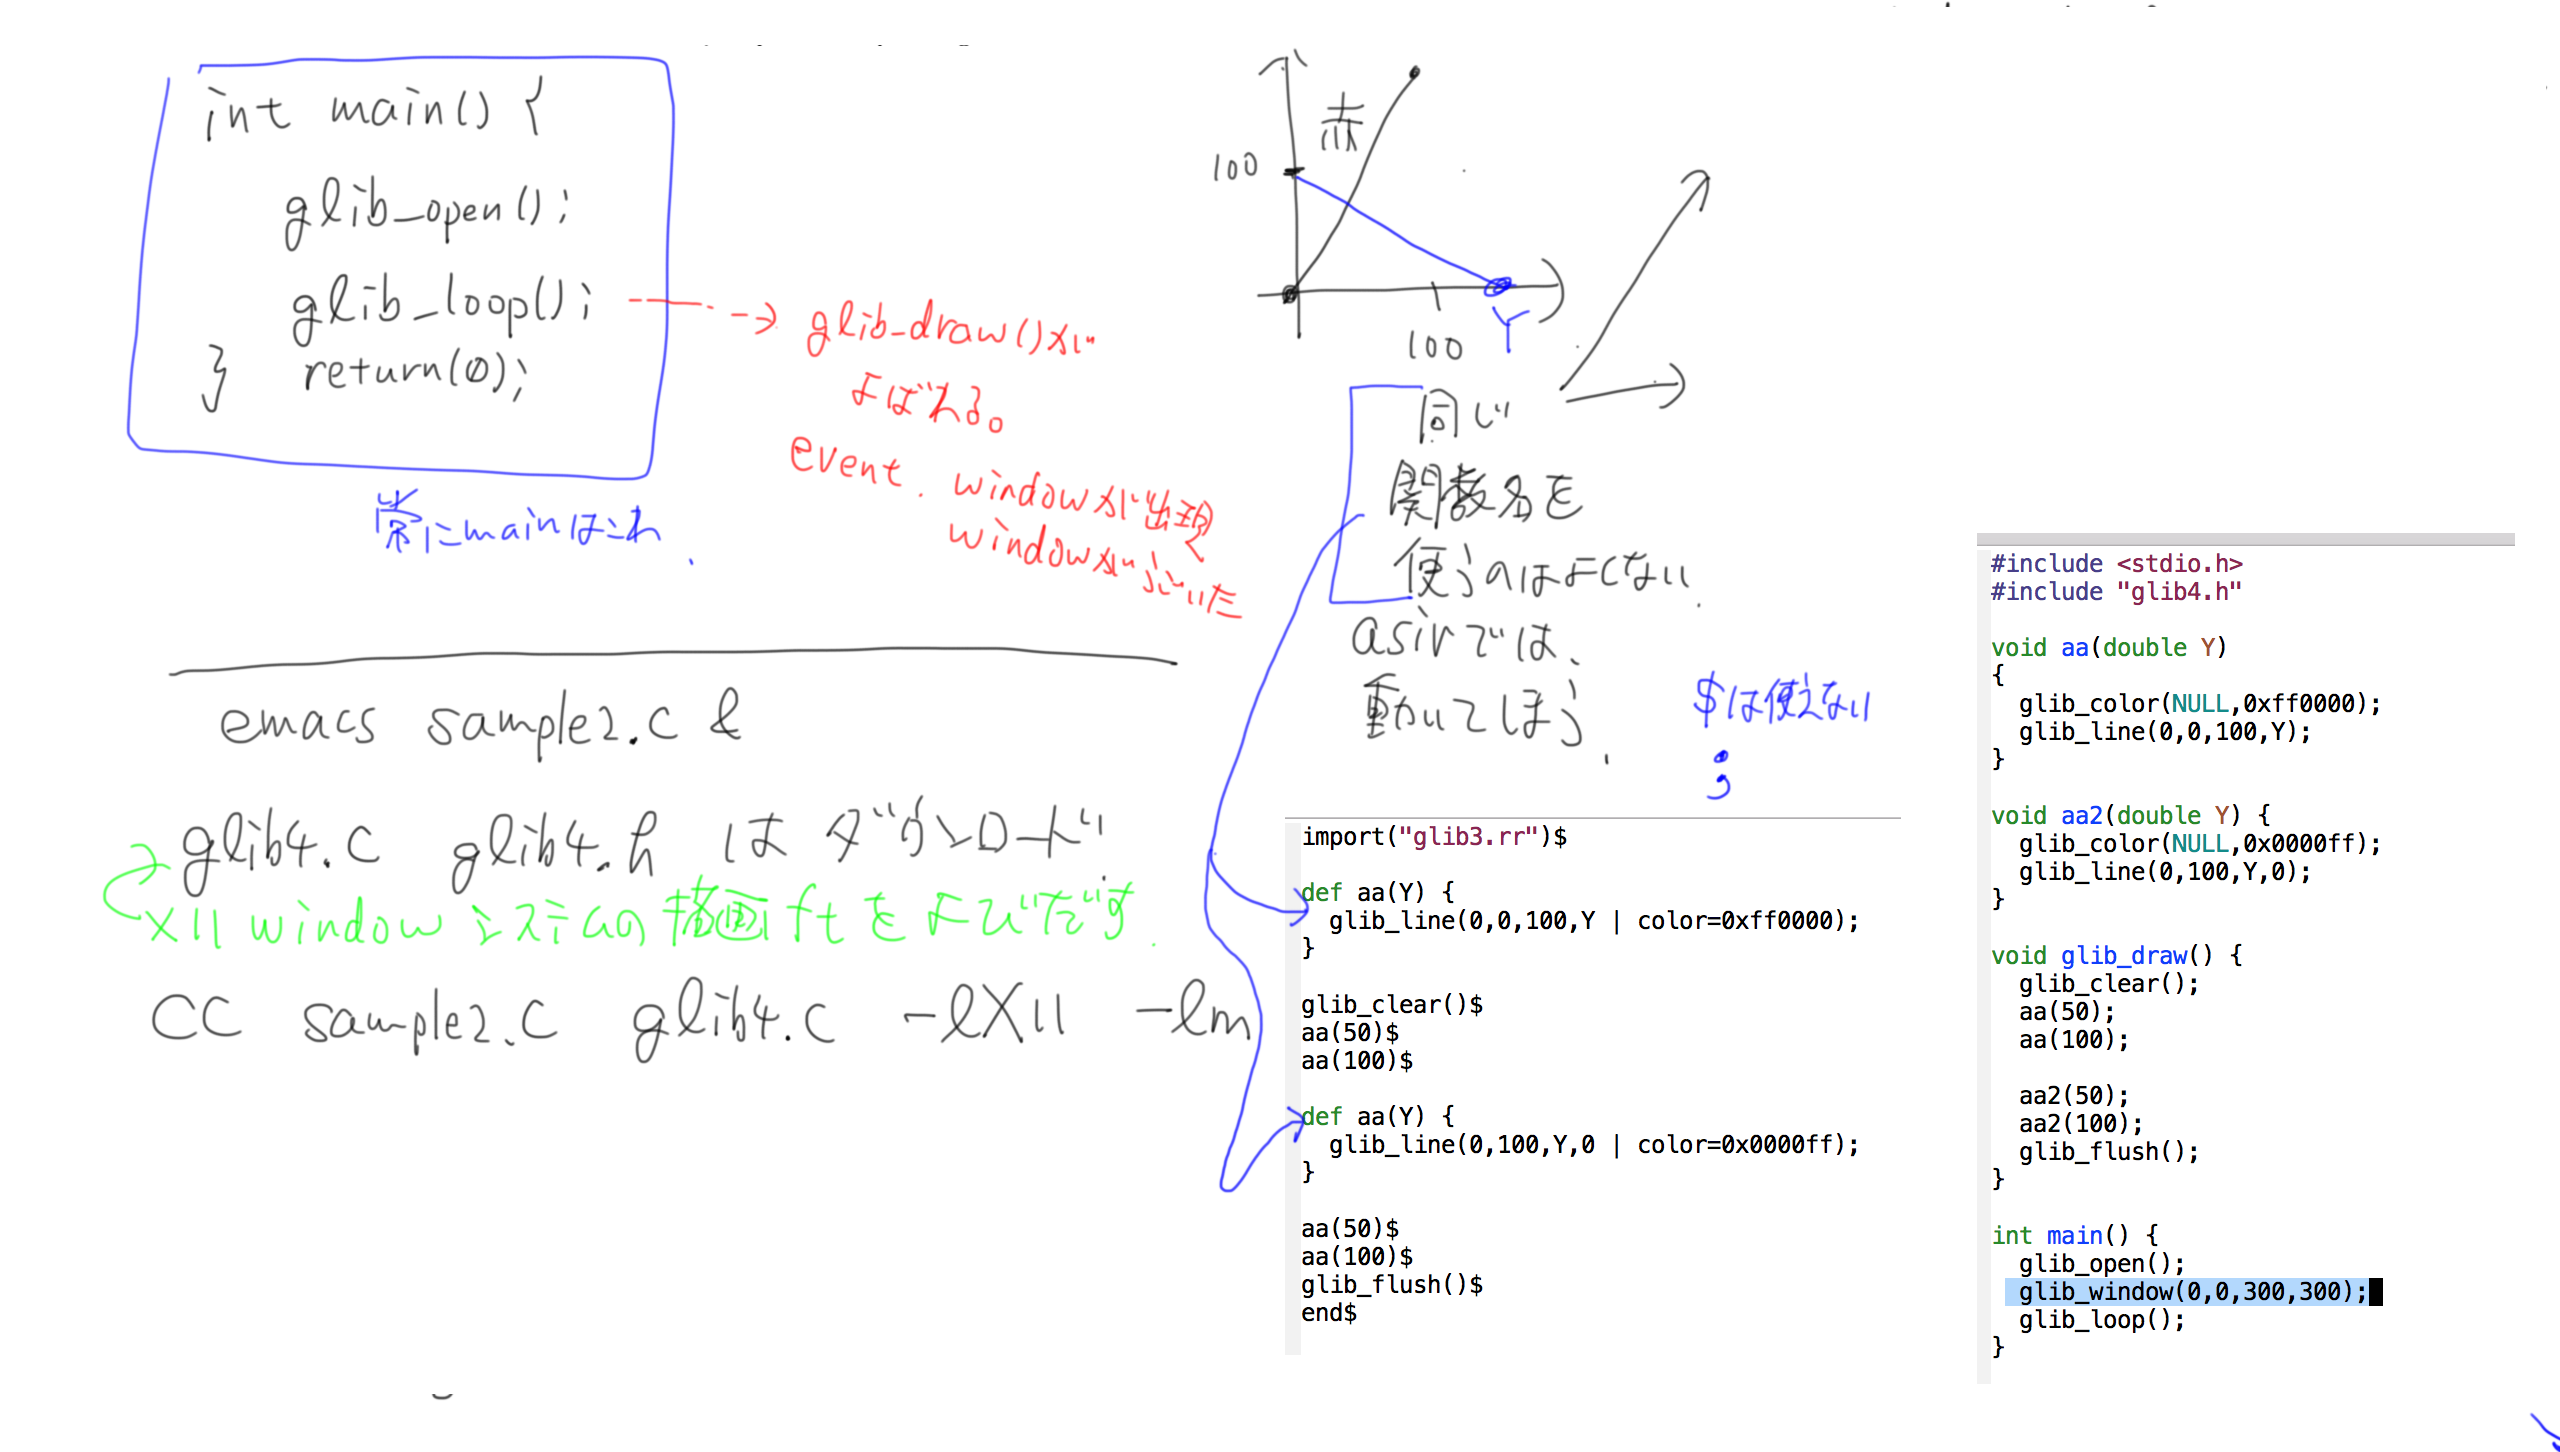 int main() {
glib_open();
glib_loop();
} return(0);
常にmainはこれ.
glib_draw()が
よばれる。
event. windowが出現
windowがうごいた
emacs sample2.c &
glib4.c glib4.h は ダウンロード.
X11 window システムの描画 ftをよびだす.
cc sample2.c glib4.c -lX11 -lm
赤
100
100
Y
同じ
関数名を
使うのはよくない.
asirでは、
動いてしまう.
$は使えない
;
import("glib3.rr")$
def aa(Y) {
glib_line(0,0,100,Y | color=0xff0000);
}
glib_clear()$
aa(50)$
aa(100)$
def aa(Y) {
glib_line(0,100,Y,0 | color=0x0000ff);
}
aa(50)$
aa(100)$
glib_flush()$
end$
#include <stdio.h>
#include "glib4.h"
void aa(double Y)
{
glib_color(NULL,0xff0000);
glib_line(0,0,100,Y);
}
void aa2(double Y) {
glib_color(NULL,0x0000ff);
glib_line(0,100,Y,0);
}
void glib_draw() {
glib_clear();
aa(50);
aa(100);
aa2(50);
aa2(100);
glib_flush();
}
int main() {
glib_open();
glib_window(0,0,300,300);
glib_loop();
}